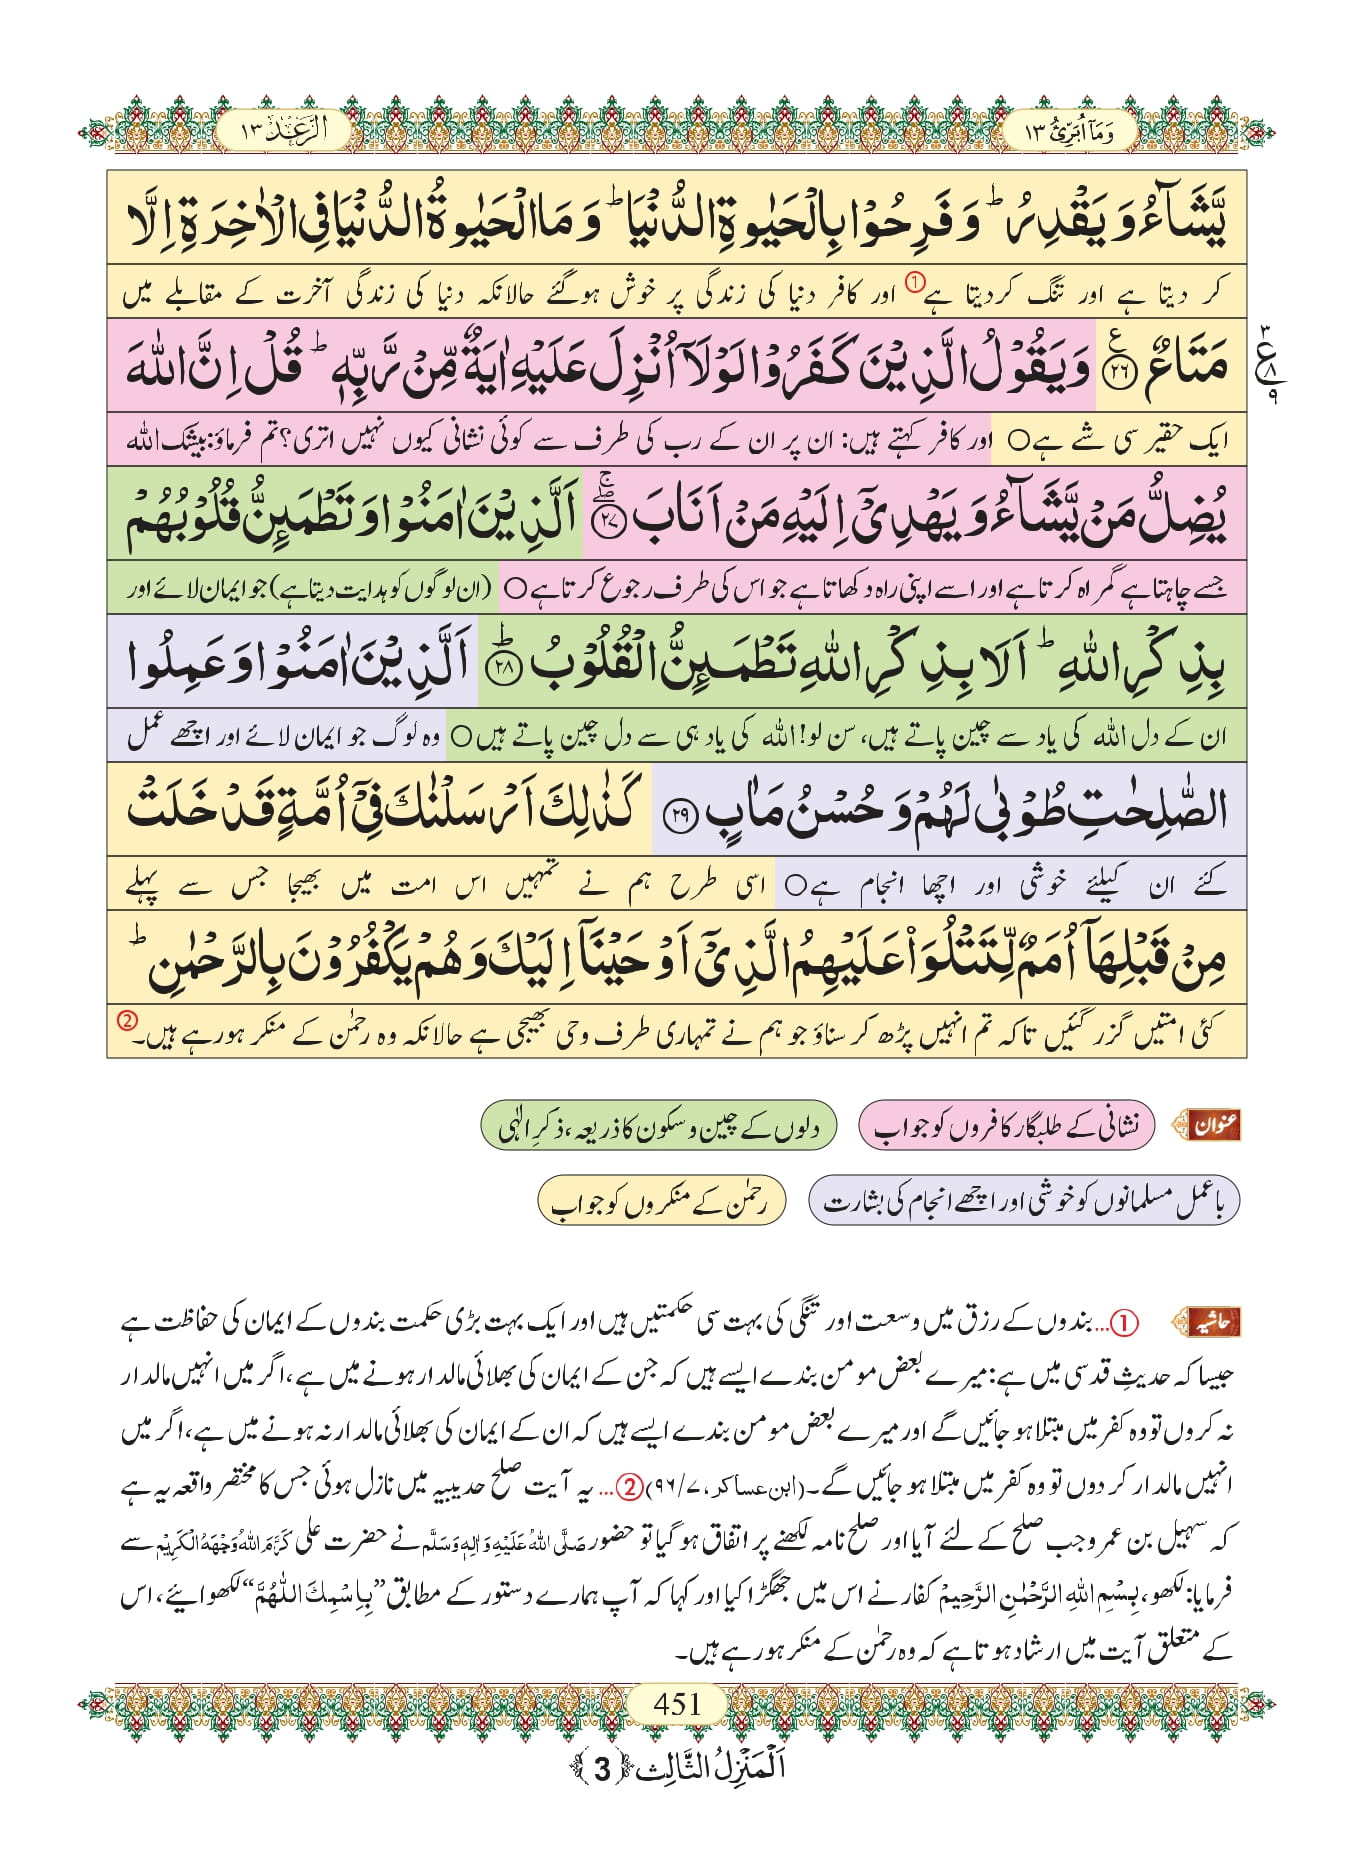 وَمَاۤ اُبَرِّئُ ١٣
الرَّعْد ١٣
یَّشَآءُ وَ یَقْدِرُ ؕ وَ فَرِحُوْا بِالْحَیٰوةِ الدُّنْیَا ؕ وَ مَا الْحَیٰوةُ الدُّنْیَا فِی الْاٰخِرَةِ اِلَّا
کر دیتا ہے اور تنگ کردیتا ہے ① اور کافر دنیا کی زندگی پر خوش ہوگئے حالانکہ دنیا کی زندگی آخرت کے مقابلے میں
مَتَاعٌ ﴿۲۶﴾ ع وَ یَقُوْلُ الَّذِیْنَ كَفَرُوْا لَوْلَاۤ اُنْزِلَ عَلَیْهِ اٰیَةٌ مِّنْ رَّبِّهٖ ؕ قُلْ اِنَّ اللّٰهَ
٣ ع ٨ ٩
ایک حقیر سی شے ہے○ اور کافر کہتے ہیں: ان پر ان کے رب کی طرف سے کوئی نشانی کیوں نہیں اتری؟ تم فرماؤ: بیشک اللہ
یُضِلُّ مَنْ یَّشَآءُ وَ یَهْدِیْۤ اِلَیْهِ مَنْ اَنَابَ ﴿۲۷﴾ۖۚ اَلَّذِیْنَ اٰمَنُوْا وَ تَطْمَىِٕنُّ قُلُوْبُهُمْ
جسے چاہتا ہے گمراہ کرتا ہے اور اسے اپنی راہ دکھاتا ہے جو اس کی طرف رجوع کرتا ہے○ (ان لوگوں کو ہدایت دیتا ہے) جو ایمان لائے اور
بِذِكْرِ اللّٰهِ ؕ اَلَا بِذِكْرِ اللّٰهِ تَطْمَىِٕنُّ الْقُلُوْبُ ﴿۲۸﴾ؕ اَلَّذِیْنَ اٰمَنُوْا وَ عَمِلُوا
ان کے دل اللہ کی یاد سے چین پاتے ہیں، سن لو! اللہ کی یاد ہی سے دل چین پاتے ہیں○ وہ لوگ جو ایمان لائے اور اچھے عمل
الصّٰلِحٰتِ طُوْبٰى لَهُمْ وَ حُسْنُ مَاٰبٍ ﴿۲۹﴾ كَذٰلِكَ اَرْسَلْنٰكَ فِیْۤ اُمَّةٍ قَدْ خَلَتْ
کئے ان کیلئے خوشی اور اچھا انجام ہے○ اسی طرح ہم نے تمہیں اس امت میں بھیجا جس سے پہلے
مِنْ قَبْلِهَاۤ اُمَمٌ لِّتَتْلُوَاۡ عَلَیْهِمُ الَّذِیْۤ اَوْحَیْنَاۤ اِلَیْكَ وَ هُمْ یَكْفُرُوْنَ بِالرَّحْمٰنِ ؕ
کئی امتیں گزر گئیں تاکہ تم انہیں پڑھ کر سناؤ جو ہم نے تمہاری طرف وحی بھیجی ہے حالانکہ وہ رحمٰن کے منکر ہورہے ہیں۔ ②
عنوان نشانی کے طلبگار کافروں کو جواب دلوں کے چین و سکون کا ذریعہ، ذکرِ الٰہی
باعمل مسلمانوں کو خوشی اور اچھے انجام کی بشارت رحمٰن کے منکروں کو جواب
حاشیہ ①... بندوں کے رزق میں وسعت اور تنگی کی بہت سی حکمتیں ہیں اور ایک بہت بڑی حکمت بندوں کے ایمان کی حفاظت ہے
جیسا کہ حدیثِ قدسی میں ہے: میرے بعض مومن بندے ایسے ہیں کہ جن کے ایمان کی بھلائی مالدار ہونے میں ہے، اگر میں انہیں مالدار
نہ کروں تو وہ کفر میں مبتلا ہو جائیں گے اور میرے بعض مومن بندے ایسے ہیں کہ ان کے ایمان کی بھلائی مالدار نہ ہونے میں ہے، اگر میں
انہیں مالدار کر دوں تو وہ کفر میں مبتلا ہو جائیں گے۔ (ابن عساکر، ۷/۹۶) ②... یہ آیت صلح حدیبیہ میں نازل ہوئی جس کا مختصر واقعہ یہ ہے
کہ سہیل بن عمرو جب صلح کے لئے آیا اور صلح نامہ لکھنے پر اتفاق ہو گیا تو حضور صَلَّی اللہُ عَلَیْهِ وَاٰلِهٖ وَسَلَّم نے حضرت علی كَرَّمَ اللہُ وَجْهَهُ الْكَرِيْم سے
فرمایا: لکھو، بِسْمِ اللہِ الرَّحْمٰنِ الرَّحِيْمِ کفار نے اس میں جھگڑا کیا اور کہا کہ آپ ہمارے دستور کے مطابق ”بِاسْمِكَ اللّٰهُمَّ“ لکھوائیے، اس
کے متعلق آیت میں ارشاد ہوتا ہے کہ وہ رحمٰن کے منکر ہورہے ہیں۔
451
اَلْمَنْزِلُ الثَّالِث ﴿3﴾